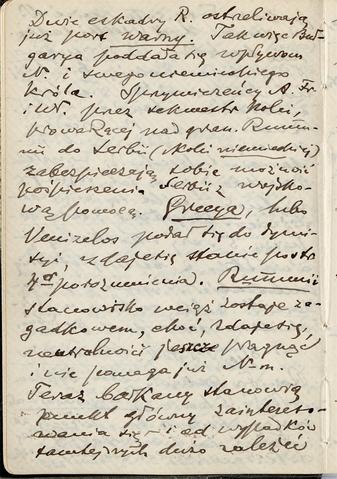 Dwie eskadry R. ostrzeliwają
już port Warny. Tak więc Buł-
garya poddała się wpływom
N. i swego niemieckiego
króla. Sprzymierzeńcy A. Fr.
i Wł. przez sekwestr kolei,
prowadzącej nad gran. Rumu-
nii do Serbii (kolei niemieckiej)
zabezpieczają sobie możność
pośpieszenia Serbii z wojsko-
wą pomocą. Grecya, lubo
Venizelos podał się do dymi-
syi, zdaje się stanie po str.
4º porozumienia. Rumunii
stanowisko wciąż zostaje za-
gadkowem, choć, zdaje się,
neutralności jeszcze pragnąć
i nie pomaga już N-m.
Teraz Bałkany stanowią
punkt główny zaintereso-
wania się i od wypadków
tamtejszych dużo zależeć